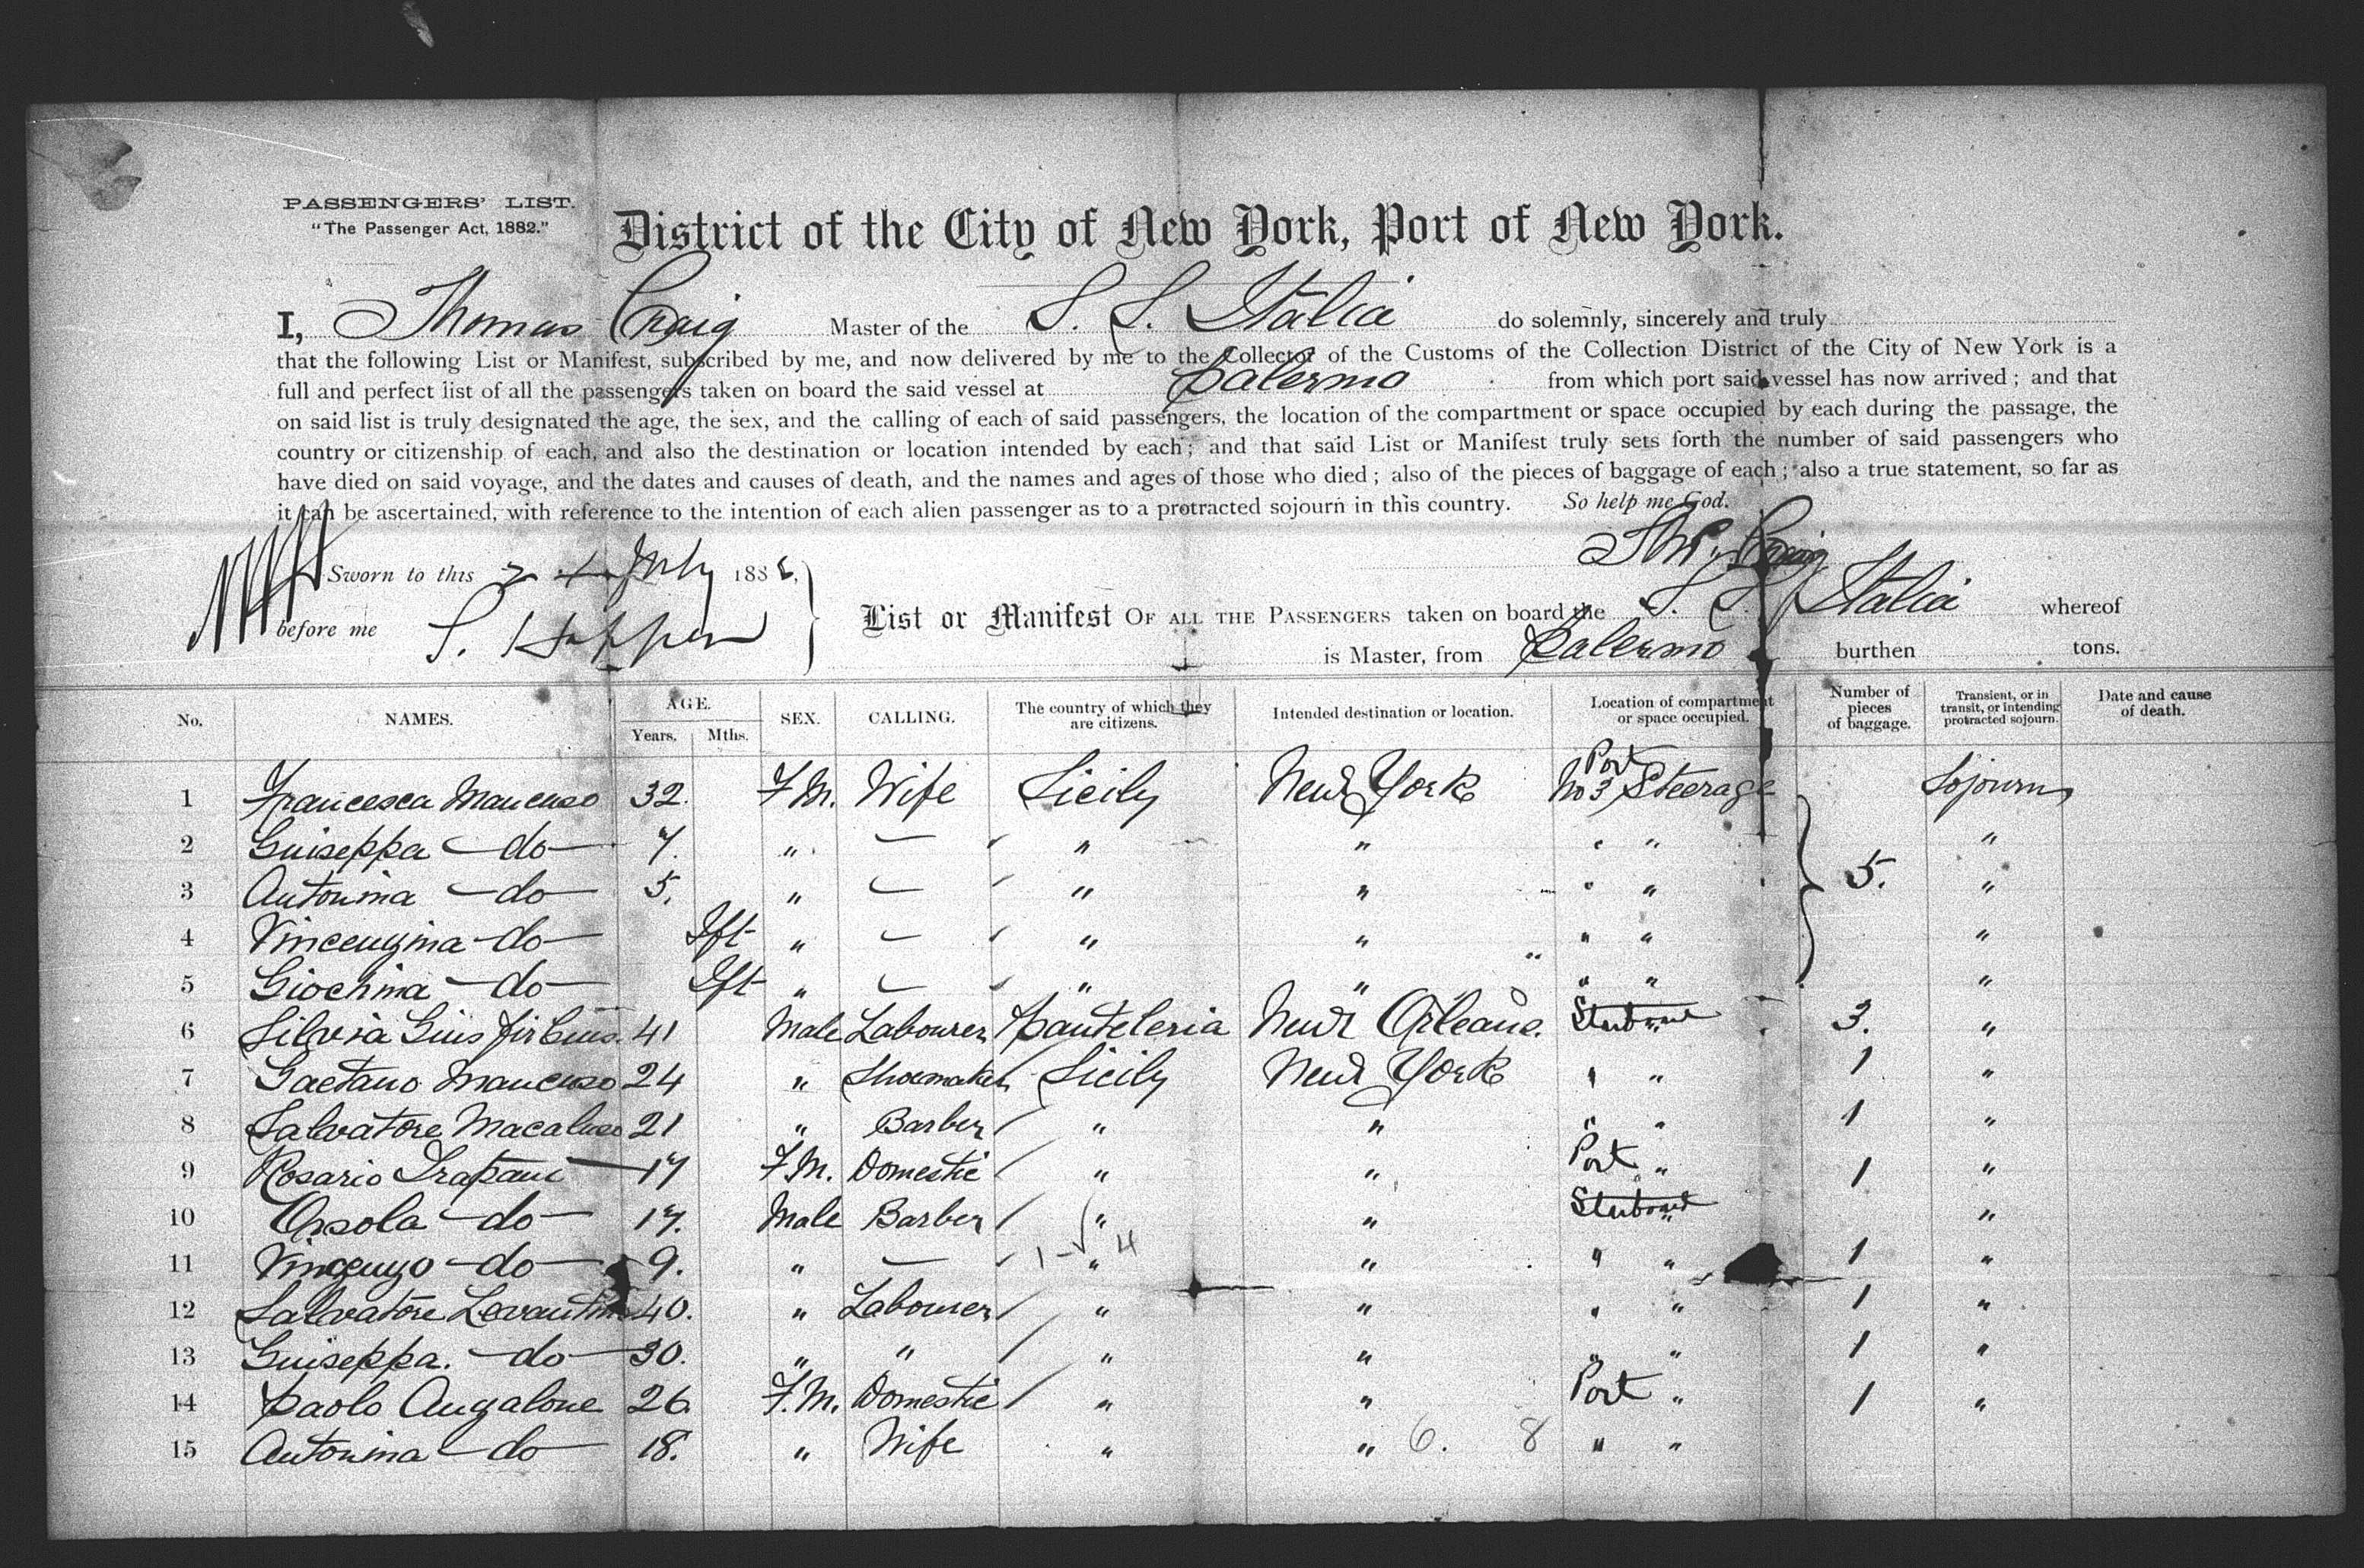 PASSENGERS' LIST.
"The Passenger Act, 1882."
District of the City of New York, Port of New York.
I, Thomas Craig Master of the S. S. Italia do solemnly, sincerely and truly
that the following List or Manifest, subscribed by me, and now delivered by me to the Collector of the Customs of the Collection District of the City of New York is a
full and perfect list of all the passengers taken on board the said vessel at Palermo from which port said vessel has now arrived; and that
on said list is truly designated the age, the sex, and the calling of each of said passengers, the location of the compartment or space occupied by each during the passage, the
country or citizenship of each, and also the destination or location intended by each; and that said List or Manifest truly sets forth the number of said passengers who
have died on said voyage, and the dates and causes of death, and the names and ages of those who died; also of the pieces of baggage of each; also a true statement, so far as
it can be ascertained, with reference to the intention of each alien passenger as to a protracted sojourn in this country. So help me God.
Thos. Craig
Sworn to this 24 July 188
before me
List or Manifest OF ALL THE PASSENGERS taken on board the S. S. Italia whereof
is Master, from Palermo burthen tons.
No. NAMES. AGE. Years. Mths. SEX. CALLING. The country of which they are citizens. Intended destination or location. Location of compartment or space occupied. Number of pieces of baggage. Transient, or in transit, or intending protracted sojourn. Date and cause of death.
1 Francesca Mancuso 32. F.M. Wife Sicily New York Port No 3 Steerage Sojourn
2 Guiseppa — do — 7. " — " " " " "
3 Antonina — do — 5. " — " " " " 5. "
4 Vincenzina — do — Ift " — " " " " "
5 Giochina — do — Ift " — " " " " "
6 Silvia Gius 41 Male Labourer Panteleria New Orleans. Starboard " 3. "
7 Gaetano Mancuso 24 " Shoemaker Sicily New York " " 1 "
8 Salvatore Macaluso 21 " Barber " " " " 1 "
9 Rosario Trapani 17 F.M. Domestic " " Port " 1 "
10 Orsola — do — 17. Male Barber " " Starboard " "
11 Vincenzo — do — 9. " — 1 - 4 " " " " 1 "
12 Salvatore Levantino 40. " Labourer " " " " 1 "
13 Guiseppa. — do — 30. " " " " " " 1 "
14 Paolo Augalone 26 F.M. Domestic " " Port " 1 "
15 Antonina — do 18. " Wife " " 6. 8 " "